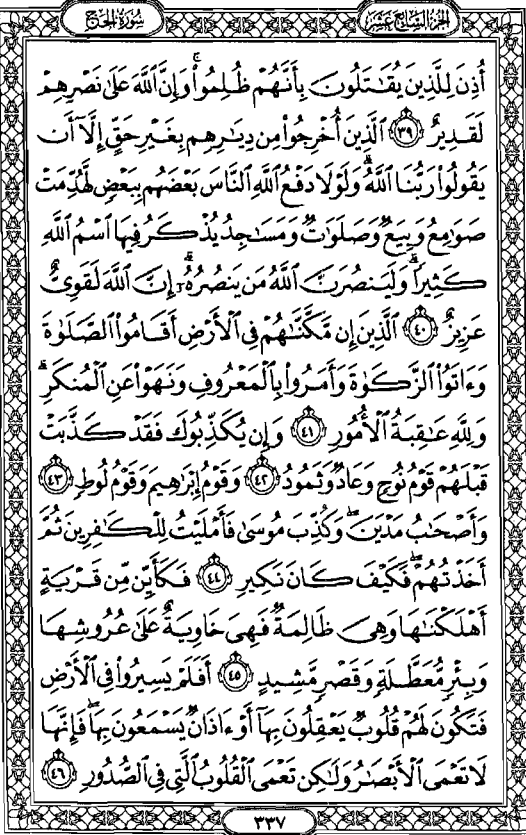 الجزء السابع عشر
سورة الحج
أُذِنَ لِلَّذِينَ يُقَٰتَلُونَ بِأَنَّهُمْ ظُلِمُوا۟ ۚ وَإِنَّ ٱللَّهَ عَلَىٰ نَصْرِهِمْ
لَقَدِيرٌ ﴿٣٩﴾ ٱلَّذِينَ أُخْرِجُوا۟ مِن دِيَٰرِهِم بِغَيْرِ حَقٍّ إِلَّآ أَن
يَقُولُوا۟ رَبُّنَا ٱللَّهُ ۗ وَلَوْلَا دَفْعُ ٱللَّهِ ٱلنَّاسَ بَعْضَهُم بِبَعْضٍ لَّهُدِّمَتْ
صَوَٰمِعُ وَبِيَعٌ وَصَلَوَٰتٌ وَمَسَٰجِدُ يُذْكَرُ فِيهَا ٱسْمُ ٱللَّهِ
كَثِيرًا ۗ وَلَيَنصُرَنَّ ٱللَّهُ مَن يَنصُرُهُۥٓ ۗ إِنَّ ٱللَّهَ لَقَوِىٌّ
عَزِيزٌ ﴿٤٠﴾ ٱلَّذِينَ إِن مَّكَّنَّٰهُمْ فِى ٱلْأَرْضِ أَقَامُوا۟ ٱلصَّلَوٰةَ
وَءَاتَوُا۟ ٱلزَّكَوٰةَ وَأَمَرُوا۟ بِٱلْمَعْرُوفِ وَنَهَوْا۟ عَنِ ٱلْمُنكَرِ ۗ
وَلِلَّهِ عَٰقِبَةُ ٱلْأُمُورِ ﴿٤١﴾ وَإِن يُكَذِّبُوكَ فَقَدْ كَذَّبَتْ
قَبْلَهُمْ قَوْمُ نُوحٍ وَعَادٌ وَثَمُودُ ﴿٤٢﴾ وَقَوْمُ إِبْرَٰهِيمَ وَقَوْمُ لُوطٍ ﴿٤٣﴾
وَأَصْحَٰبُ مَدْيَنَ ۖ وَكُذِّبَ مُوسَىٰ فَأَمْلَيْتُ لِلْكَٰفِرِينَ ثُمَّ
أَخَذْتُهُمْ ۖ فَكَيْفَ كَانَ نَكِيرِ ﴿٤٤﴾ فَكَأَيِّن مِّن قَرْيَةٍ
أَهْلَكْنَٰهَا وَهِىَ ظَالِمَةٌ فَهِىَ خَاوِيَةٌ عَلَىٰ عُرُوشِهَا
وَبِئْرٍ مُّعَطَّلَةٍ وَقَصْرٍ مَّشِيدٍ ﴿٤٥﴾ أَفَلَمْ يَسِيرُوا۟ فِى ٱلْأَرْضِ
فَتَكُونَ لَهُمْ قُلُوبٌ يَعْقِلُونَ بِهَآ أَوْ ءَاذَانٌ يَسْمَعُونَ بِهَا ۖ فَإِنَّهَا
لَا تَعْمَى ٱلْأَبْصَٰرُ وَلَٰكِن تَعْمَى ٱلْقُلُوبُ ٱلَّتِى فِى ٱلصُّدُورِ ﴿٤٦﴾
٣٣٧